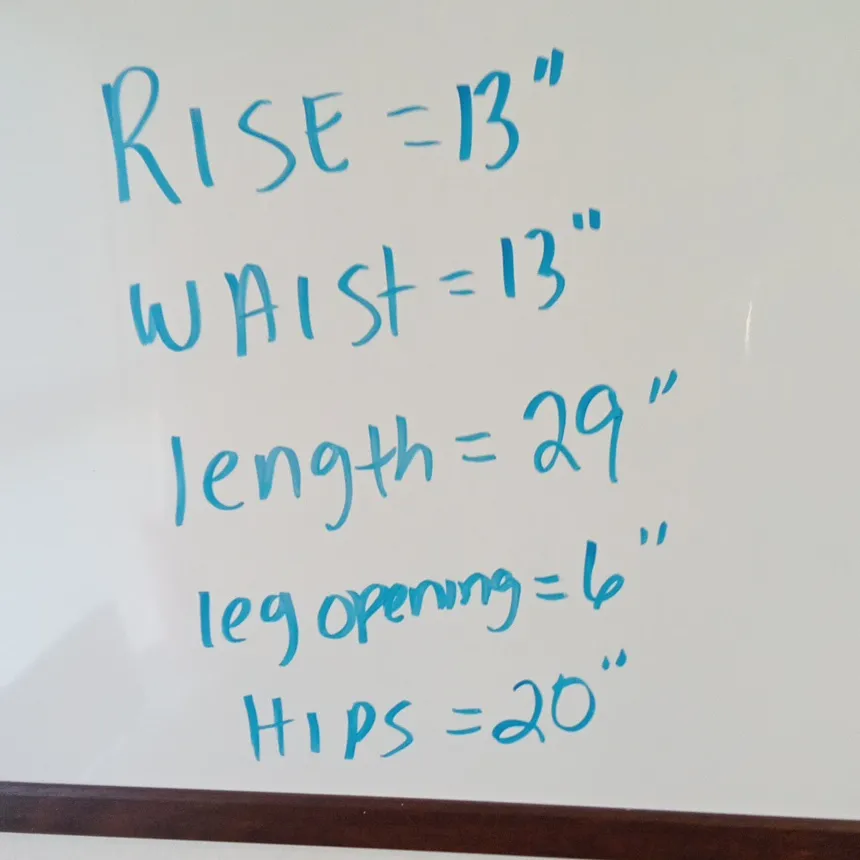 RISE = 13"
WAISt = 13"
length = 29"
leg opening = 6"
HIPS = 20"